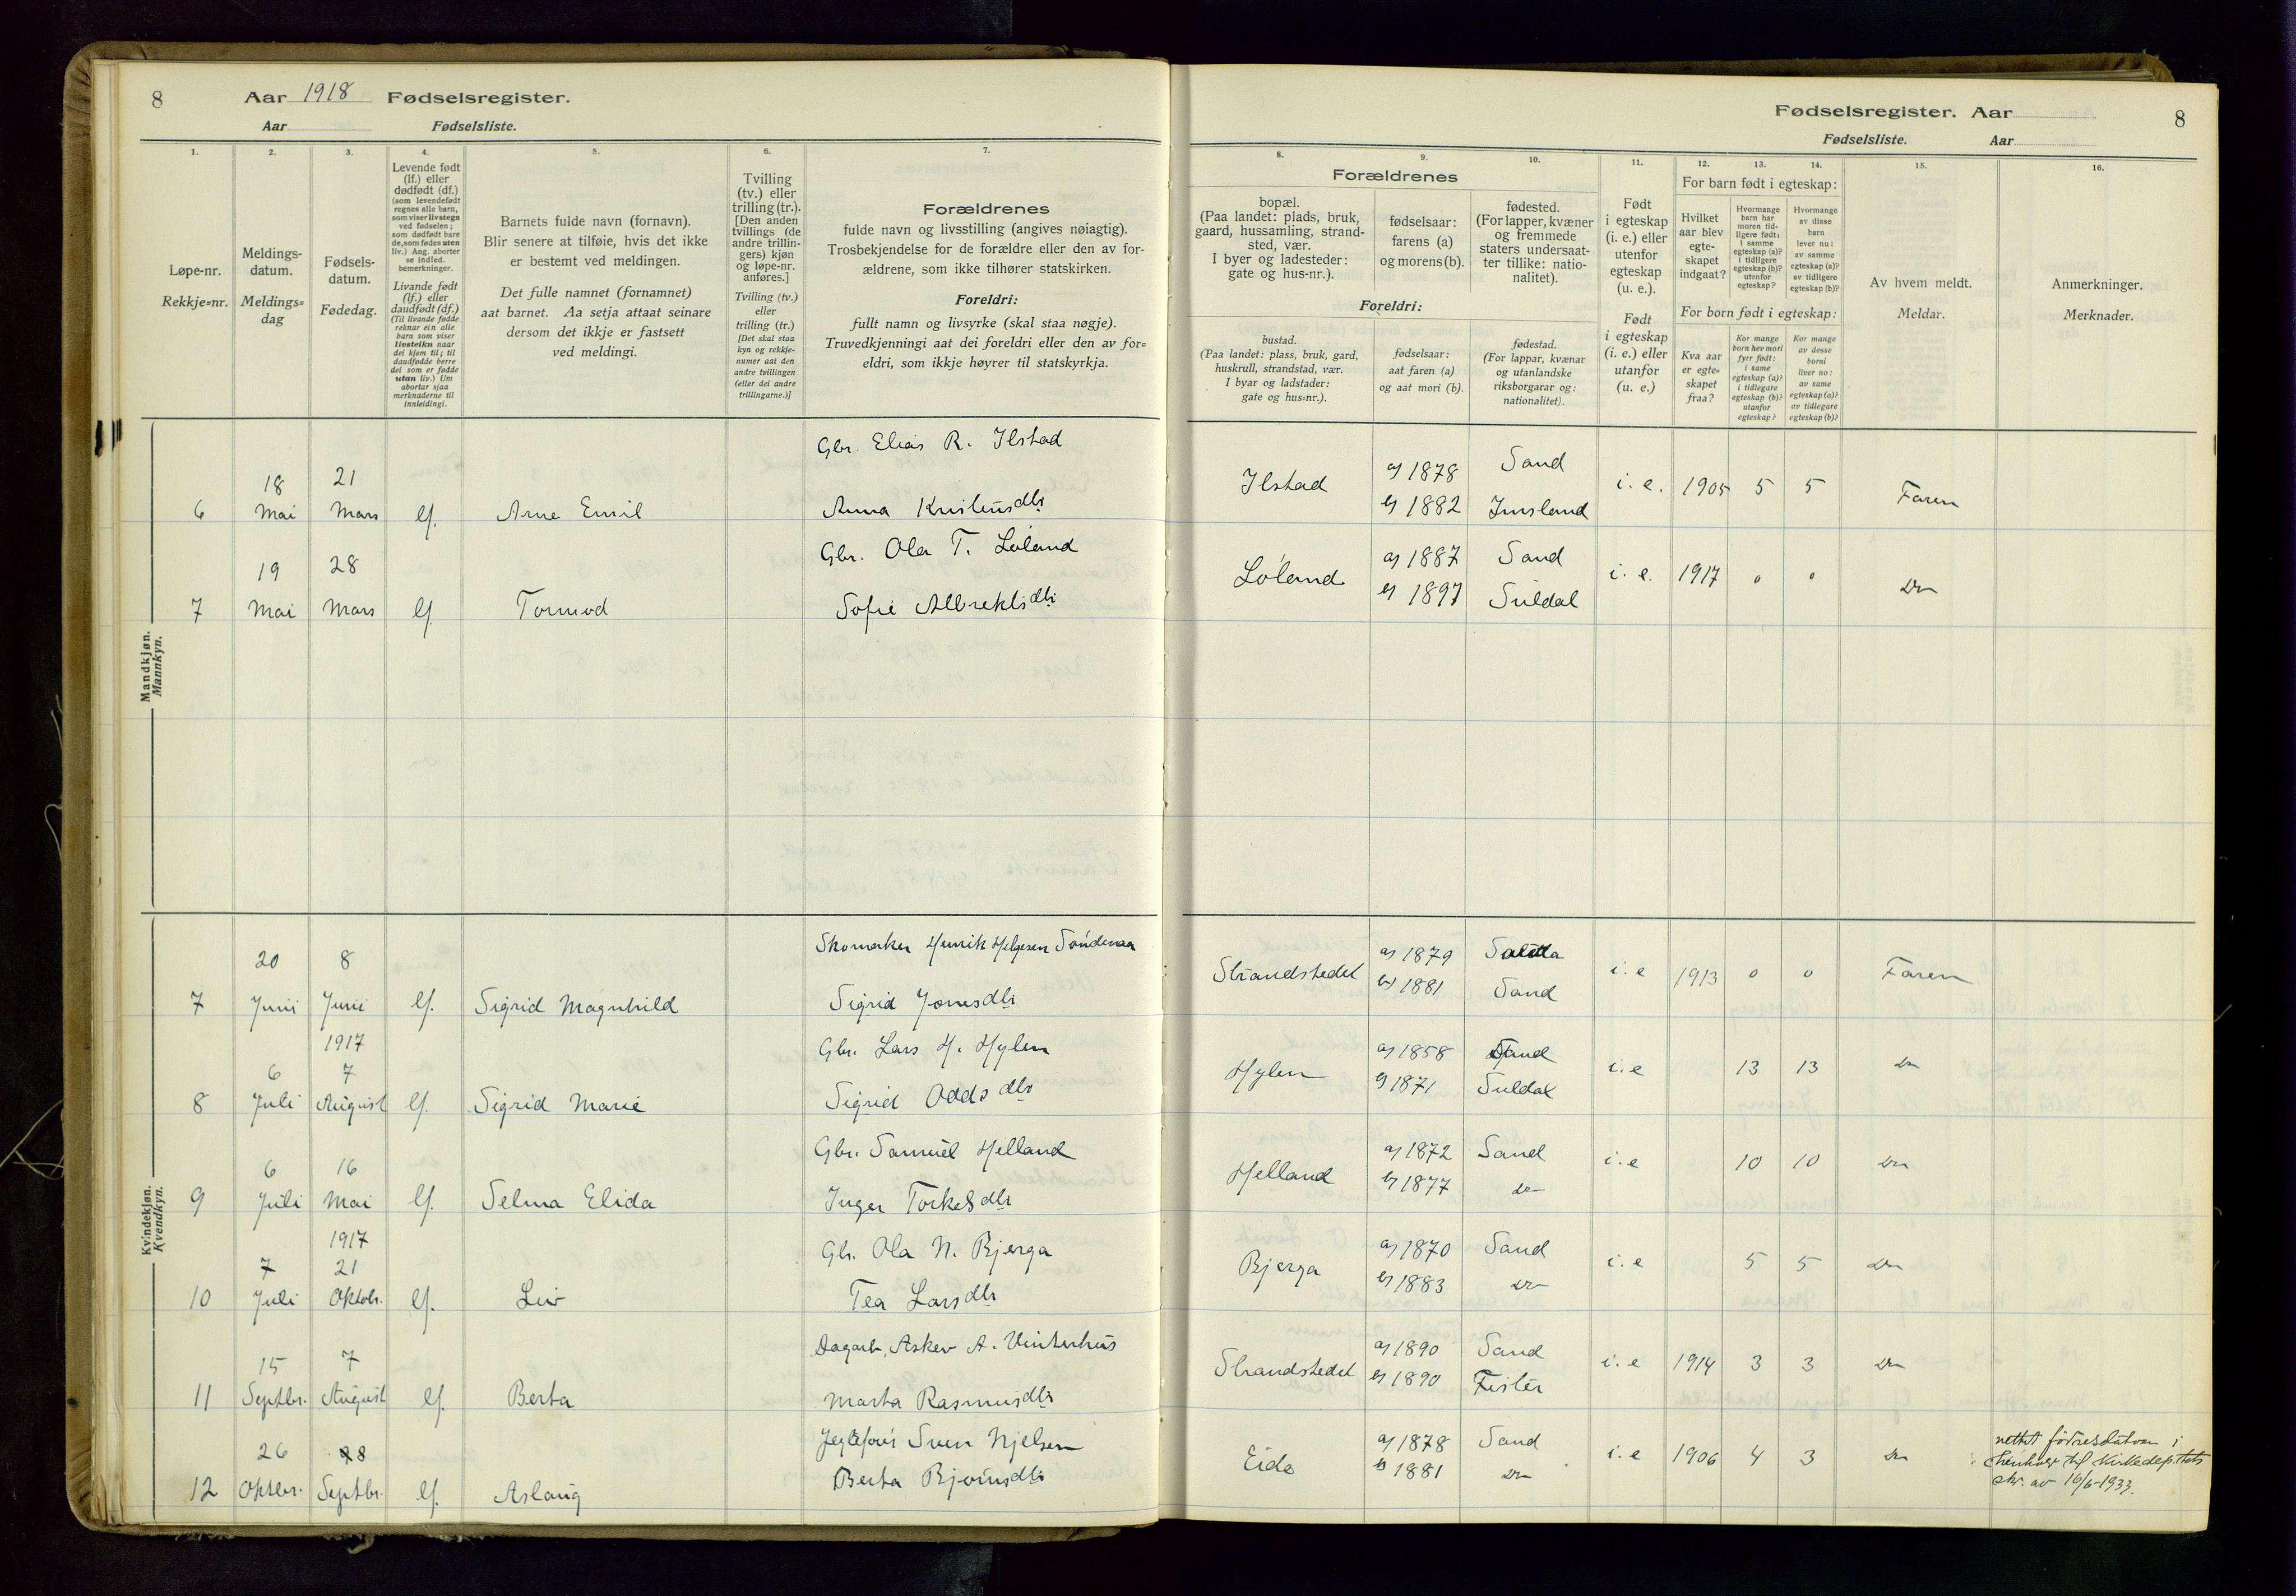 8 Aar 1918 Fødselsregister.
Aar Fødselsliste.
Fødselsregister. Aar 8
Fødselsliste. Aar
1. 2. 3. 4. 5. 6. 7.
Løpe-nr.
Rekkje-nr.
Meldings-
datum.
Meldings=
dag
Fødsels-
datum.
Fødedag.
Levende født
(lf.) eller
dødfødt (df.)
(som levendefødt
regnes alle barn,
som viser livstegn
ved fødselen;
som dødfødt bare
de, som fødes uten
liv.) Ang. aborter
se indled.
bemerkninger.
Livande født
(lf.) eller
daudfødt (df.)
(Til livande fødde
reknar ein alle
barn som viser
livsteikn naar
dei kjem til; til
daudfødde berre
dei som er fødde
utan liv.) Um
abortar sjaa
merknaderne til
innleidingi.
Barnets fulde navn (fornavn).
Blir senere at tilføie, hvis det ikke
er bestemt ved meldingen.
Det fulle namnet (fornamnet)
aat barnet. Aa setja attaat seinare
dersom det ikkje er fastsett
ved meldingi.
Tvilling
(tv.) eller
trilling (tr.).
[Den anden
tvillings (de
andre trillin-
gers) kjøn
og løpe-nr.
anføres.]
Tvilling (tv.)
eller
trilling (tr.)
[Det skal staa
kyn og rekkje-
numer aat den
andre tvillingen
(eller dei andre
trillingarne.)]
Forældrenes
fulde navn og livsstilling (angives nøiagtig).
Trosbekjendelse for de forældre eller den av for-
ældrene, som ikke tilhører statskirken.
Foreldri:
fullt namn og livsyrke (skal staa nøgje).
Truvedkjenningi aat dei foreldri eller den av for=
eldri, som ikkje høyrer til statskyrkja.
8. 9. 10. 11. 12. 13. 14. 15. 16.
Forældrenes
bopæl.
(Paa landet: plads, bruk,
gaard, hussamling, strand-
sted, vær.
I byer og ladesteder:
gate og hus-nr.).
fødselsaar:
farens (a)
og morens (b).
fødested.
(For lapper, kvæner
og fremmede
staters undersaat-
ter tillike: natio-
nalitet).
Foreldri:
bustad.
(Paa landet: plass, bruk, gard,
huskrull, strandstad, vær.
I byar og ladstader:
gate og hus=nr.).
fødselsaar:
aat faren (a)
og aat mori (b).
fødestad.
(For lappar, kvænar
og utanlandske
riksborgarar og:
nationalitet).
Født
i egteskap
(i. e.) eller
utenfor
egteskap
(u. e.).
Født
i egteskap
(i. e.) eller
utanfor
(u. e.)
For barn født i egteskap:
Hvilket
aar blev
egte-
skapet
indgaat?
Hvormange
barn har
moren tid-
ligere født:
i samme
egteskap (a)?
i tidligere
egteskap (b)?
utenfor
egteskap?
Hvormange
av disse
barn
lever nu:
av samme
egteskap (a)?
av tidligere
egteskap (b)?
For born født i egteskap:
Kva aar
er egte=
skapet
fraa?
Kor mange
born hev mori
fyrr født:
i same
egteskap (a)?
i tidlegare
egteskap (b)?
utanfor
egteskap?
Kor mange
av desse
borni
liver no:
av same
egteskap (a)?
av tidlegare
egteskap (b)?
Av hvem meldt.
Meldar.
Anmerkninger.
Merknader.
Mandkjøn.
Mannkyn.
Gbr. Elias R. Ilstad
6 18 Mai 21 Mars lf. Arne Emil
Anna Kristensdtr
Ilstad a) 1878 Sand i. e. 1905 5 5 Faren
b) 1882 Imsland
Gbr. Ola T. Løland
7 19 Mai 28 Mars lf. Tormod
Sofie Albrektsdtr
Løland a) 1887 Sand i. e. 1917 0 0 Do
b) 1897 Suldal
Kvindekjøn.
Kvendkyn.
Skomaker Henrik Helgesen Søndenaa
7 20 Juni 8 Juni lf. Sigrid Magnhild
Sigrid Jonesdtr
Strandstedet a) 1879 i. e 1913 0 0 Faren
b) 1881 Sand
Gbr. Lars H. Hylen
8 6 Juli 1917 7 August lf. Sigrid Marie
Sigrid Oddsdtr
Hylen a) 1858 Sand i. e 13 13 Do
b) 1871 Suldal
Gbr. Samuel Helland
9 6 Juli 16 Mai lf. Selma Elida
Inger Torkelsdtr
Helland a) 1872 Sand i. e 10 10 Do
b) 1877 Do
Gbr. Ola N. Bjerga
10 7 Juli 1917 21 Oktobr. lf. Liv
Tea Larsdtr
Bjerga a) 1870 Sand i. e 5 5 Do
b) 1883 Do
Dagarb. Askev A. Vinterhus
11 15 Septbr. 7 August lf. Berta
Marta Rasmusdtr
Strandstedet a) 1890 Sand i. e 1914 3 3 Do
b) 1890 Fister
Sven Njelsen
12 26 Oktbr. 8 Septbr. lf. Aslaug
Berta Bjørnsdtr
Eide a) 1878 Sand i. e 1906 4 3 Do
b) 1881 Do
rettet fødselsdatoen i
henhold til Kirkedep.tets
skr. av 16/6-1933.